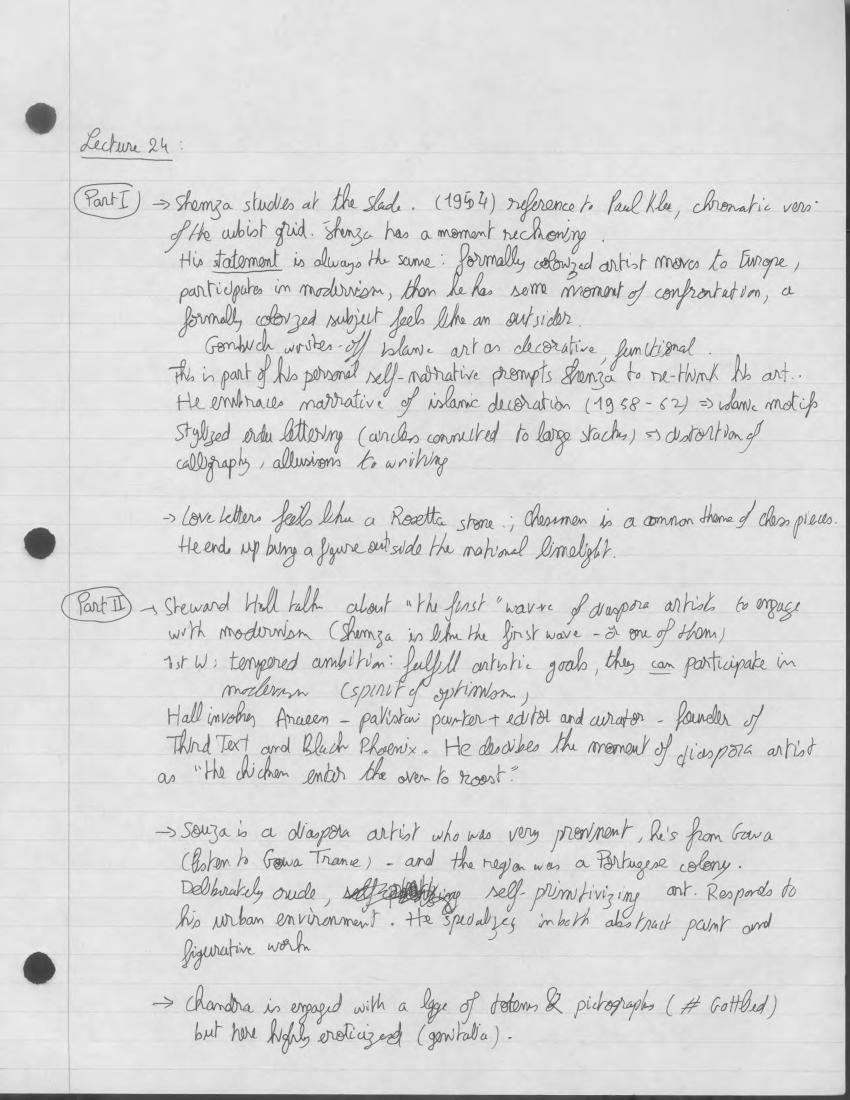 Lecture 24 :
Part I → Shemza studies at the slade. (1954) reference to Paul Klee, chromatic vers.
of the cubist grid. Shenza has a moment reckoning.
His statement is always the same : formally colonized artist moves to Europe,
participates in modernism, then he has some moment of confrontation, a
formally colonized subject feels like an outsider.
Gombrich writes-off islamic art as decorative, functional.
This is part of his personal self-narrative prompts Shenza to re-think his art..
He embraces narrative of islamic decoration (1958-62) ⇒ islamic motifs
Stylized urdu lettering (circles connected to large stacks) ⇒ distortion of
calligraphy, allusions to writing
→ Love Letters feels like a Rosetta stone.; Chessmen is a common theme of chess pieces.
He ends up being a figure outside the national limelight.
Part II → Steward Hall talk about "the first" wave of diaspora artists to engage
with modernism (Shemza is like the first wave - one of them)
1st W: tempered ambition: fulfill artistic goals, they can participate in
modernism (spirit of optimism)
Hall involves Araeen - pakistani painter + editor and curator - founder of
Third Text and Black Phoenix. He describes the moment of diaspora artist
as "the chicken enter the oven to roost."
→ Souza is a diaspora artist who was very prominent, he's from Gowa
(listen to Gowa Trance) - and the region was a Portugese colony.
Deliberately crude, self-primitivizing art. Responds to
his urban environment. He specializes in both abstract paint and
figurative work
→ Chandra is engaged with a lgge of totems & pictographs (# Gottlied)
but here highly eroticized (genitalia).